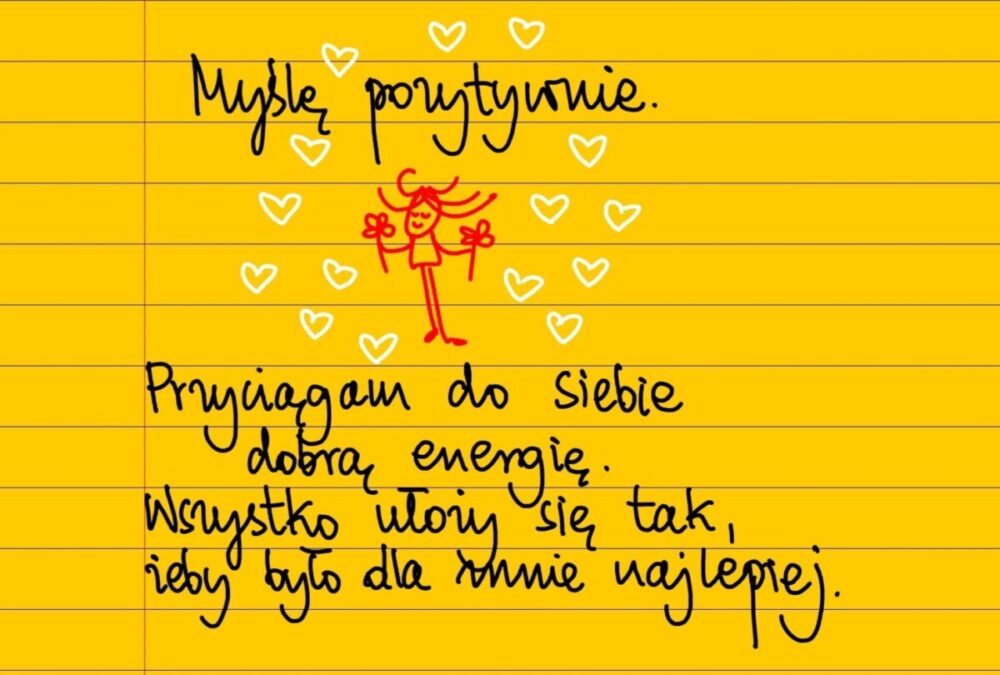 Myślę pozytywnie.
Przyciągam do siebie
dobrą energię.
Wszystko ułoży się tak,
żeby było dla mnie najlepiej.